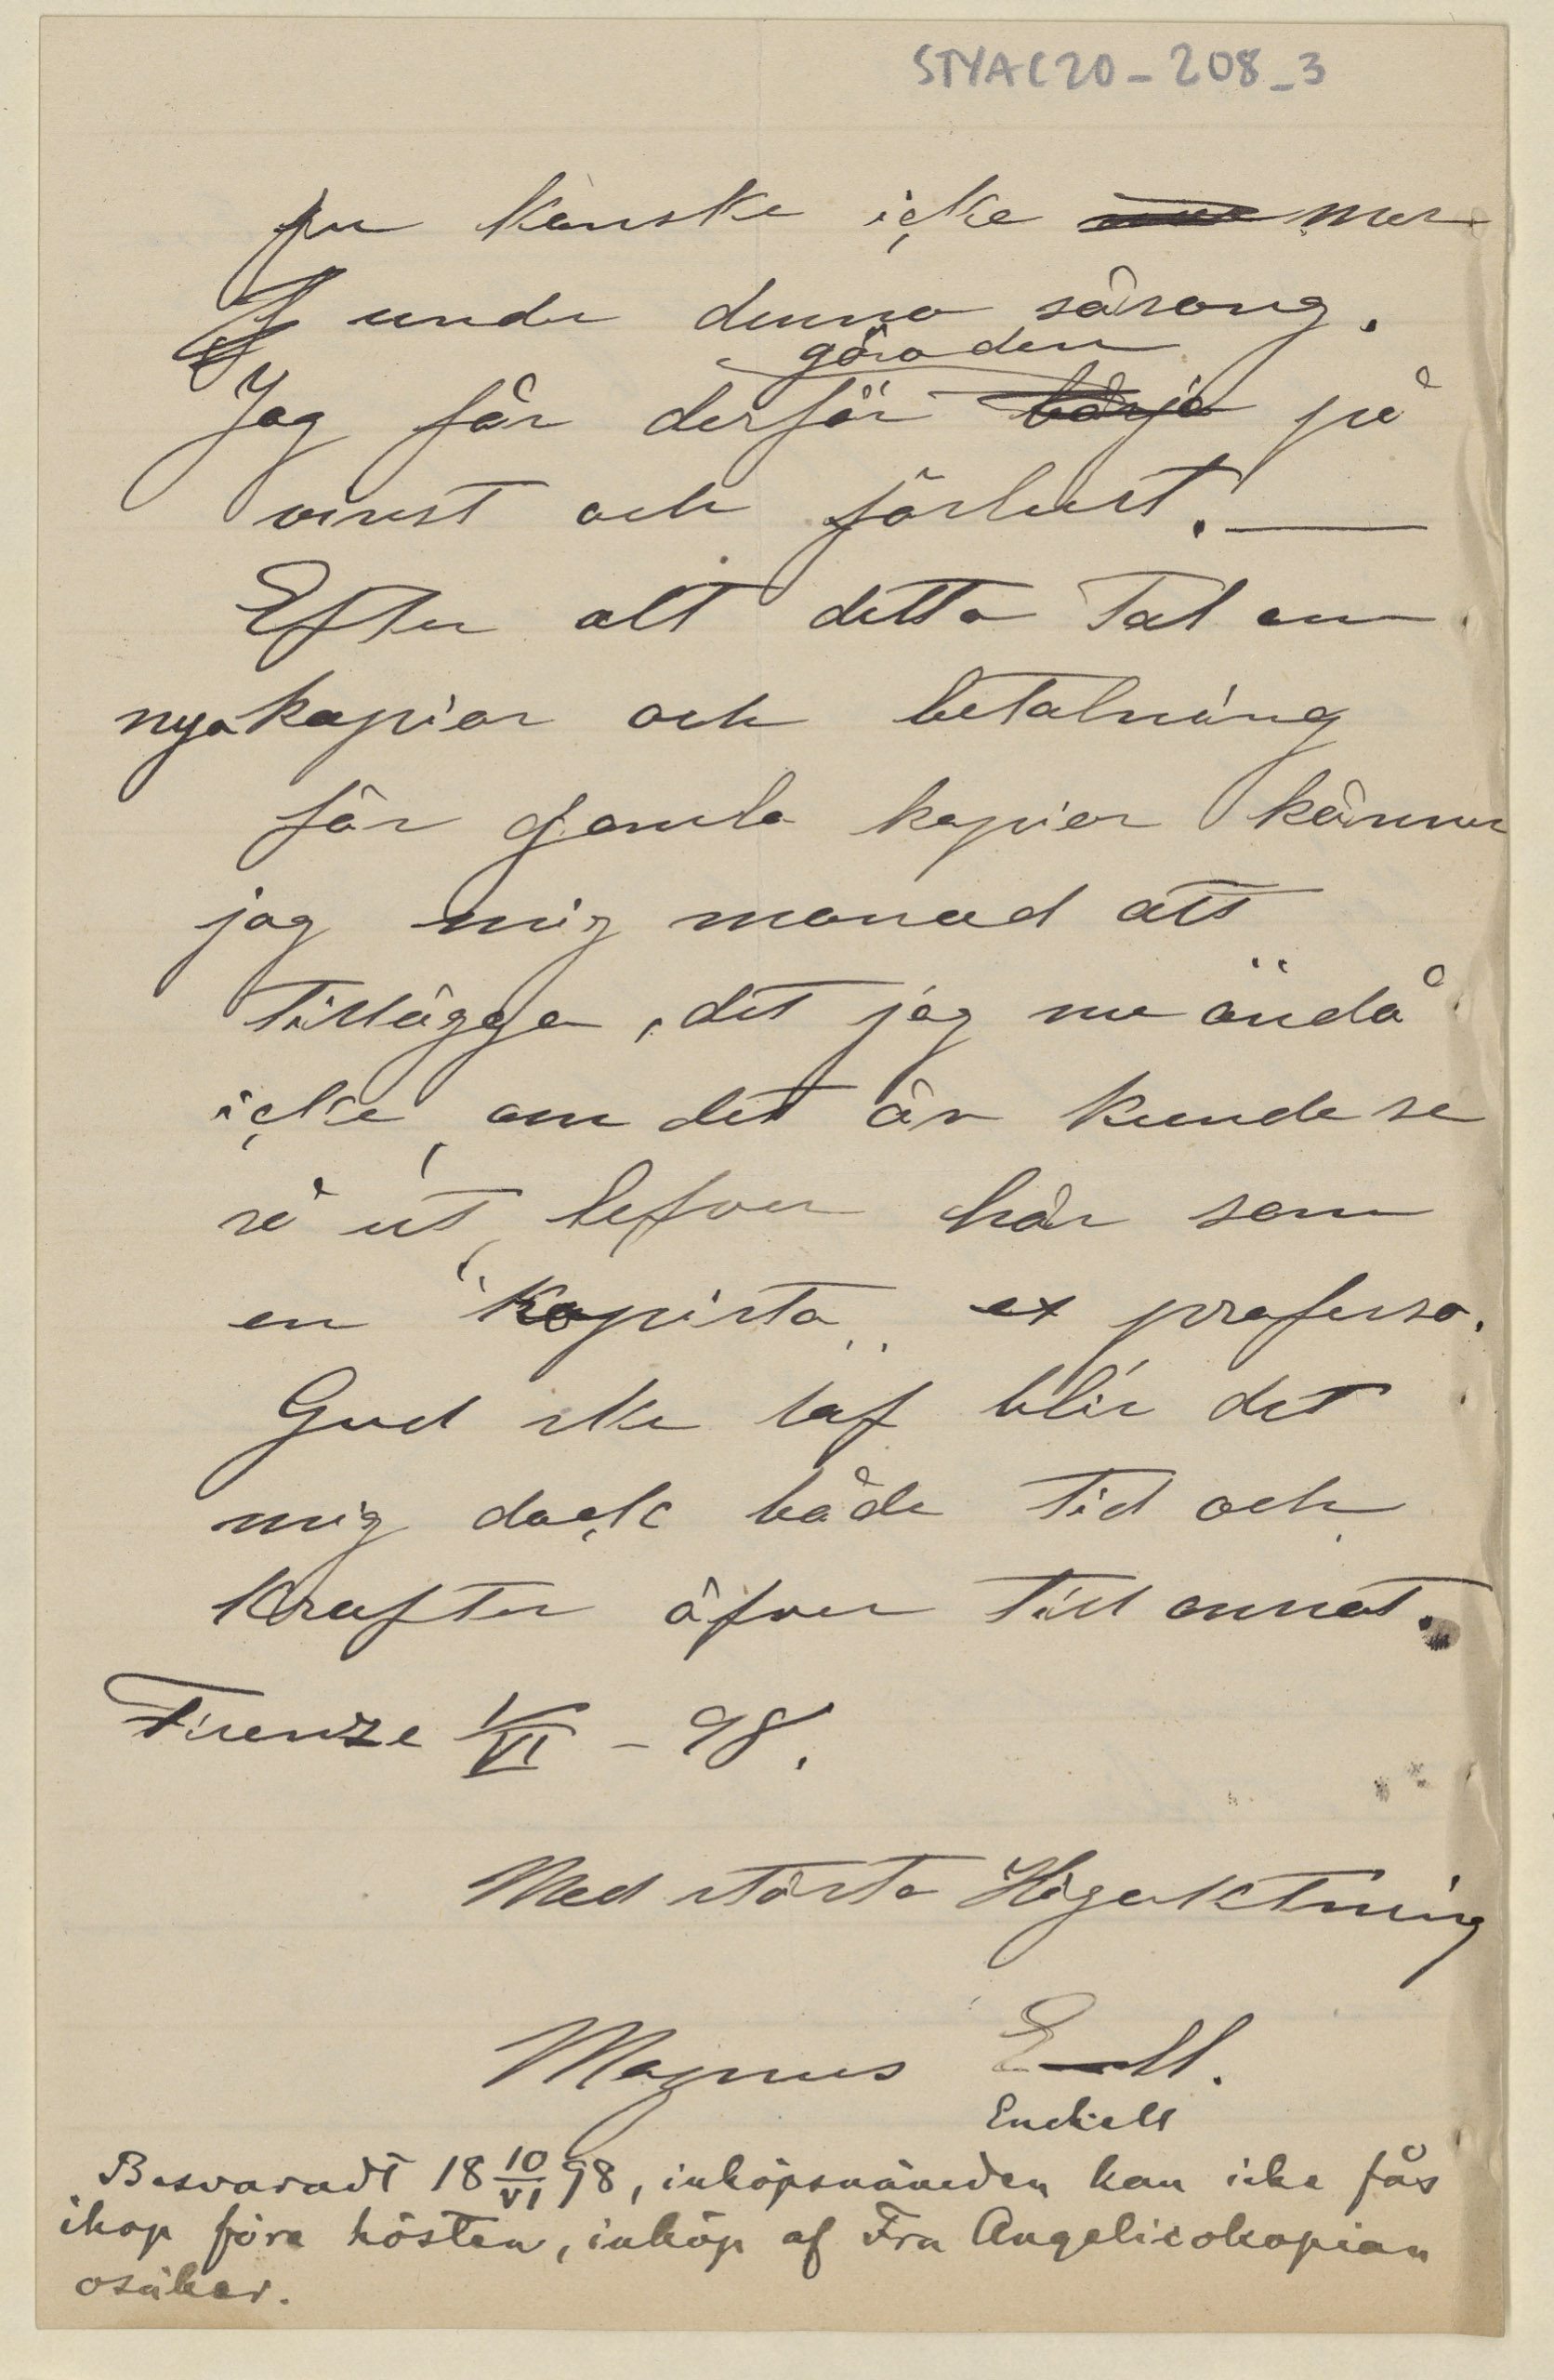 STYAC20-208_3
ju kanske icke mer
under denna säsong.
göra den
Jag får derför börja på
vinst och förlust. —
Efter alt detta Tal om
nya kopior och betalning
för gamla kopior känner
jag mig manad att
Tillägga, det jag nu ändå
icke, om det än kunde se
så ut, lefver här som
en "kopista" ex professo.
Gud ske laf blir det
mig dock både Tid och
Krafter öfver Till annat.
Firenze 1/VI - 98.
Med största Högaktning
Magnus E—ll.
Enckell
Besvaradt 18 10/VI 98, inköpsnämnden kan icke fås
ihop före hösten, inköp af Fra Angelicokopian
osäker.